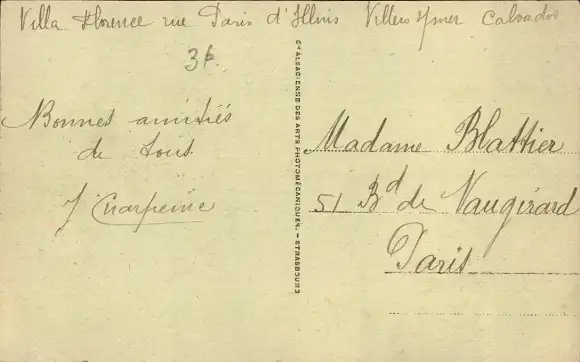 Villa Florence rue Paris d'Illins Villers s/mer Calvados
3f.
Bonnes amitiés
de tous
J Charpeine
Cie ALSACIENNE DES ARTS PHOTOMÉCANIQUES. — STRASBOURG
Madame Blattier
51 Bd de Vaugirard
Paris